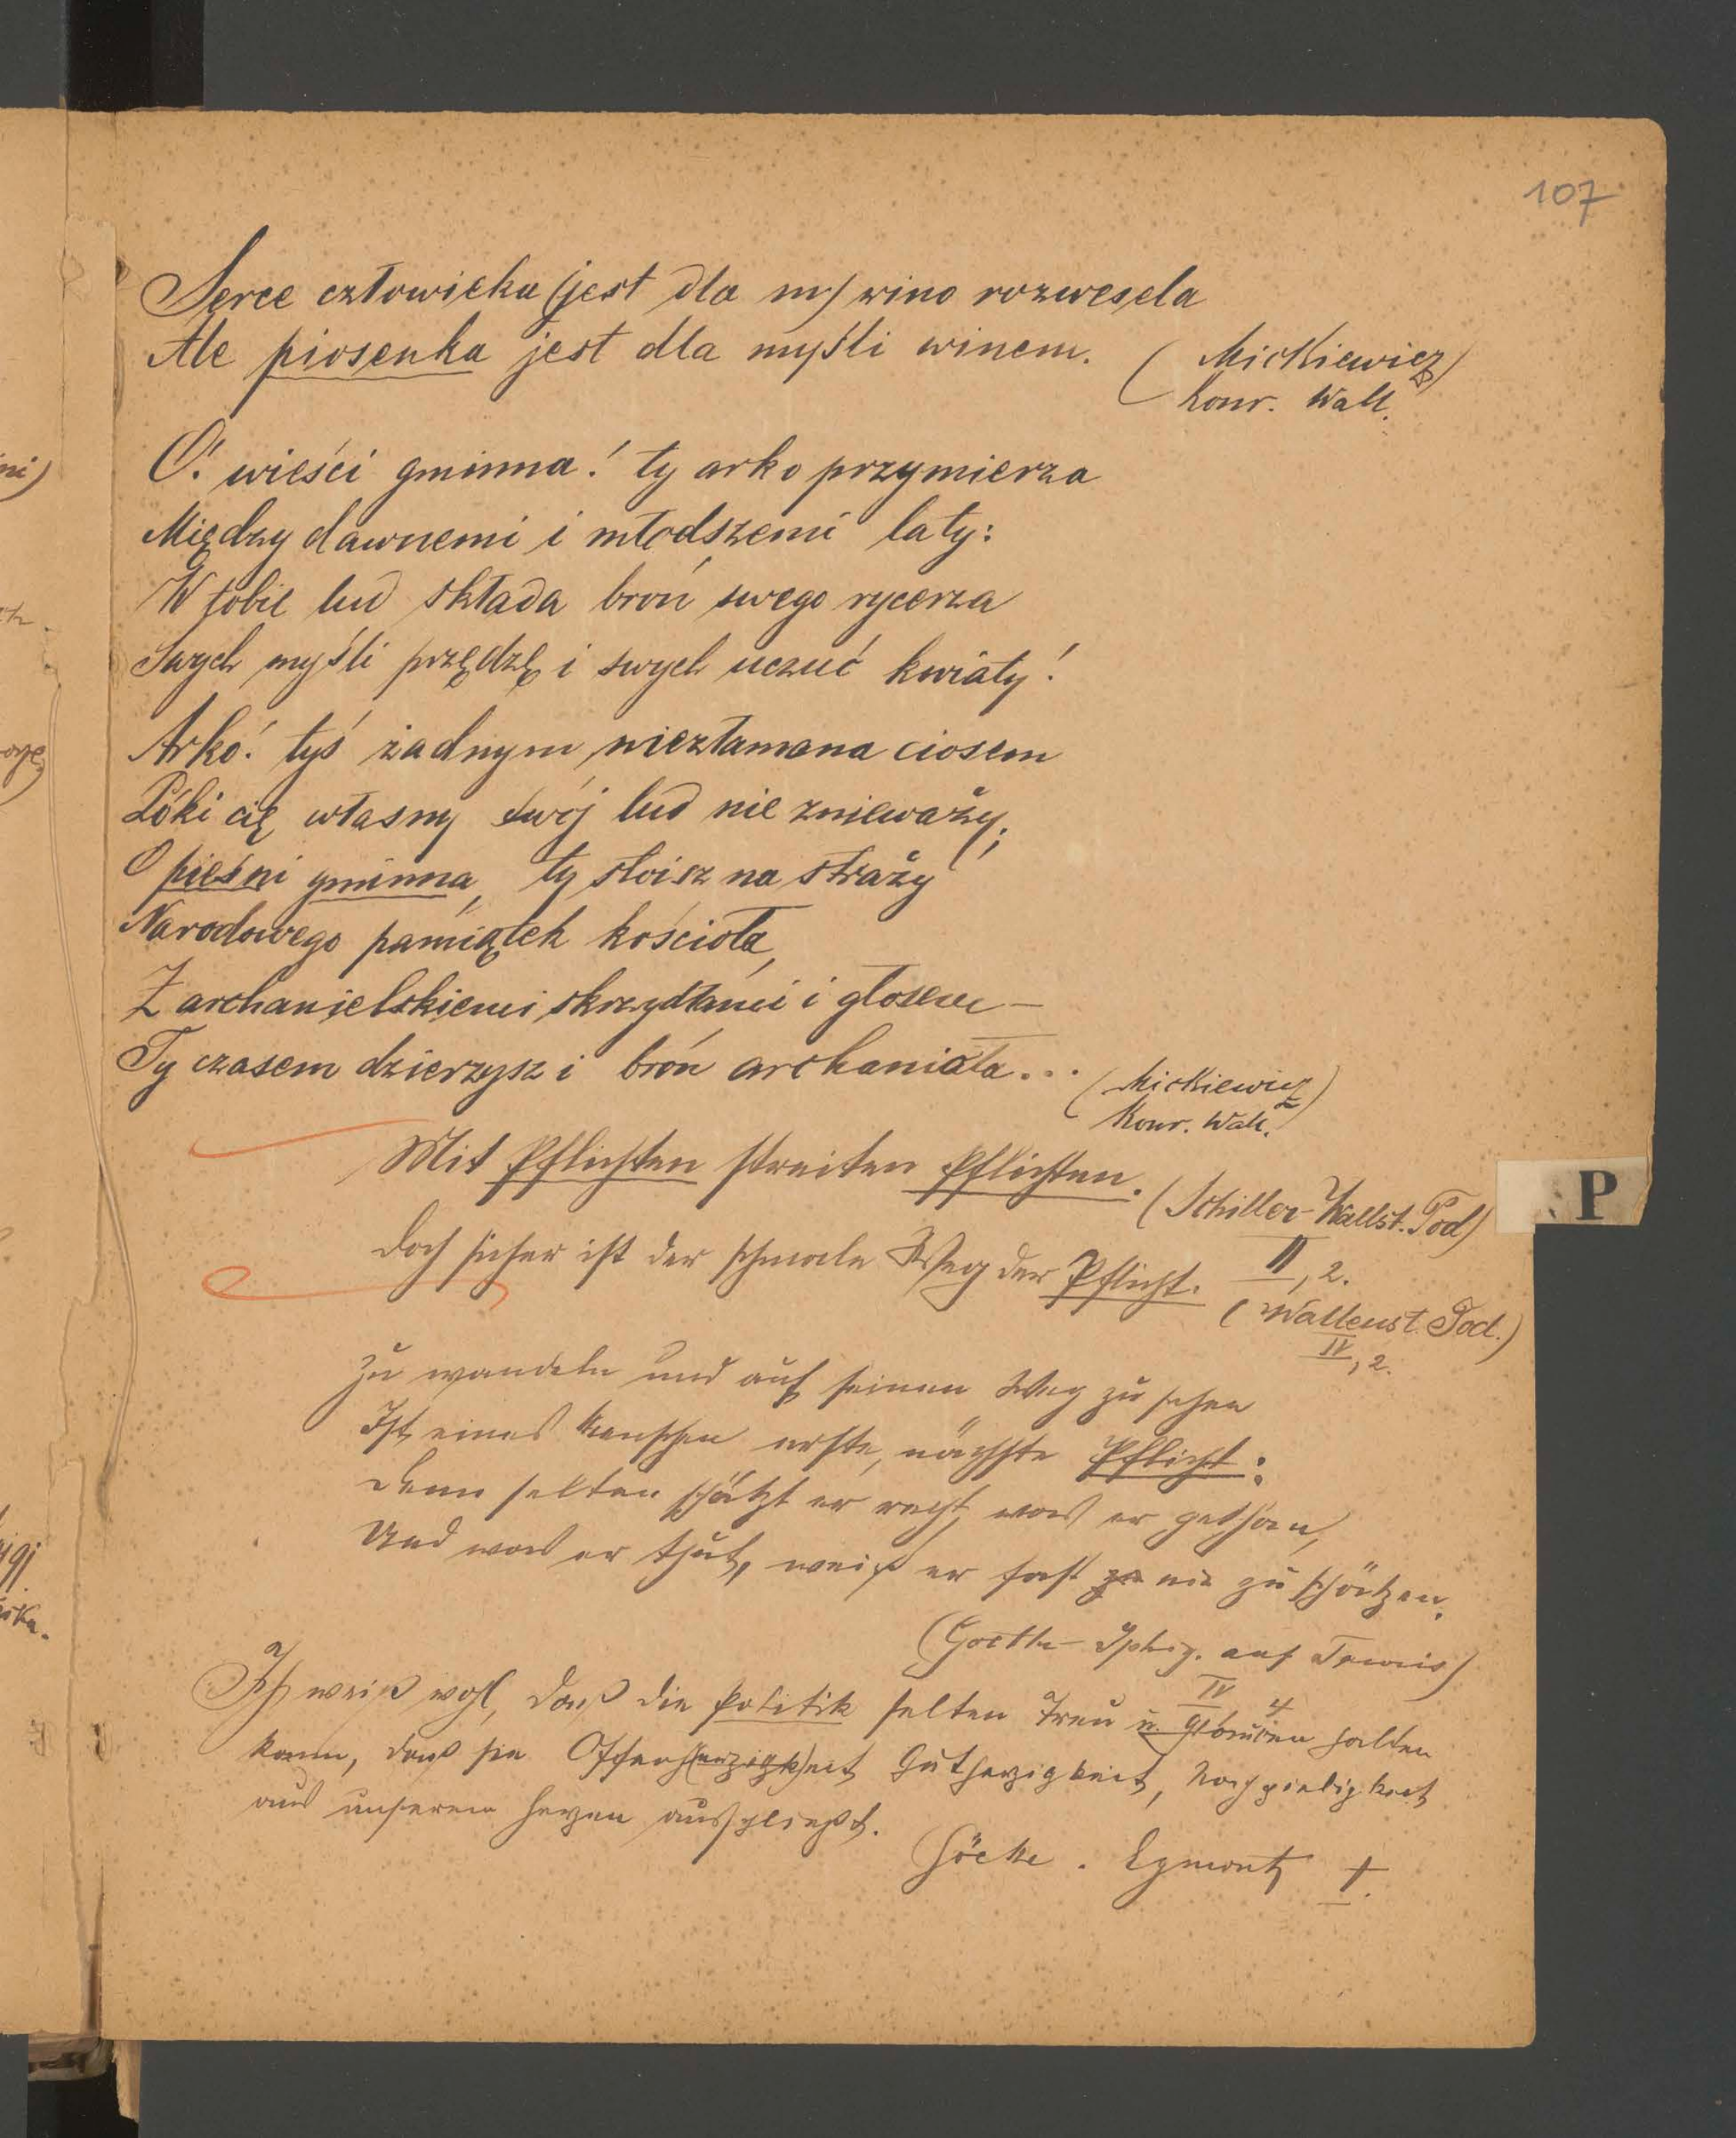 107
Serce człowieka (jest dla my) wino rozwesela
Ale piosenka jest dla myśli winem. (Mickiewicz)
Konr. Wall.
O! wieści gminna! ty arko przymierza
Między dawnemi i młodszemi laty:
W tobie lud składa broń swego rycerza
Swych myśli przędzę i swych uczuć kwiaty!
Arko! tyś żadnym niezłamana ciosem
Póki cię własny twój lud nie znieważy;
O pieśni gminna, ty stoisz na straży
Narodowego pamiątek kościoła,
Z archanielskiemi skrzydłami i głosem —
Ty czasem dzierzysz i broń archanioła... (Mickiewicz)
Konr. Wall.
Mit Pflichten streiten Pflichten. (Schiller-Wallst. Tod)
II, 2.
Doch sicher ist der schmale Weg der Pflicht.
(Wallenst. Tod.)
IV, 2.
Zu wandeln und auf seinen Weg zu sehen
Ist eines Menschen erste, nächste Pflicht:
Denn selten schätzt er recht, was er gethan,
Und was er thut, weiß er fast zu nie zu schätzen.
(Goethe - Iphig. auf Tauris)
IV 4
Ich weiß wohl, daß die Politik selten Treu u. Glauben halten
kann, daß sie Offenh(erzigk)eit Gutherzigkeit, Nachgiebigkeit
aus unserem Herzen ausschließt.
Göthe. Egmont I.
P